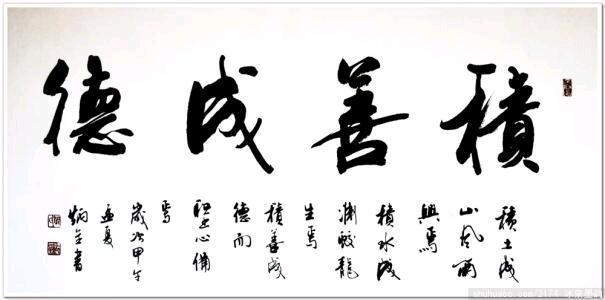 積善成德
積土成
山風雨
興焉
積水成
淵蛟龍
生焉
積善成
德而
聖心備
焉
歲次甲午
孟夏
書